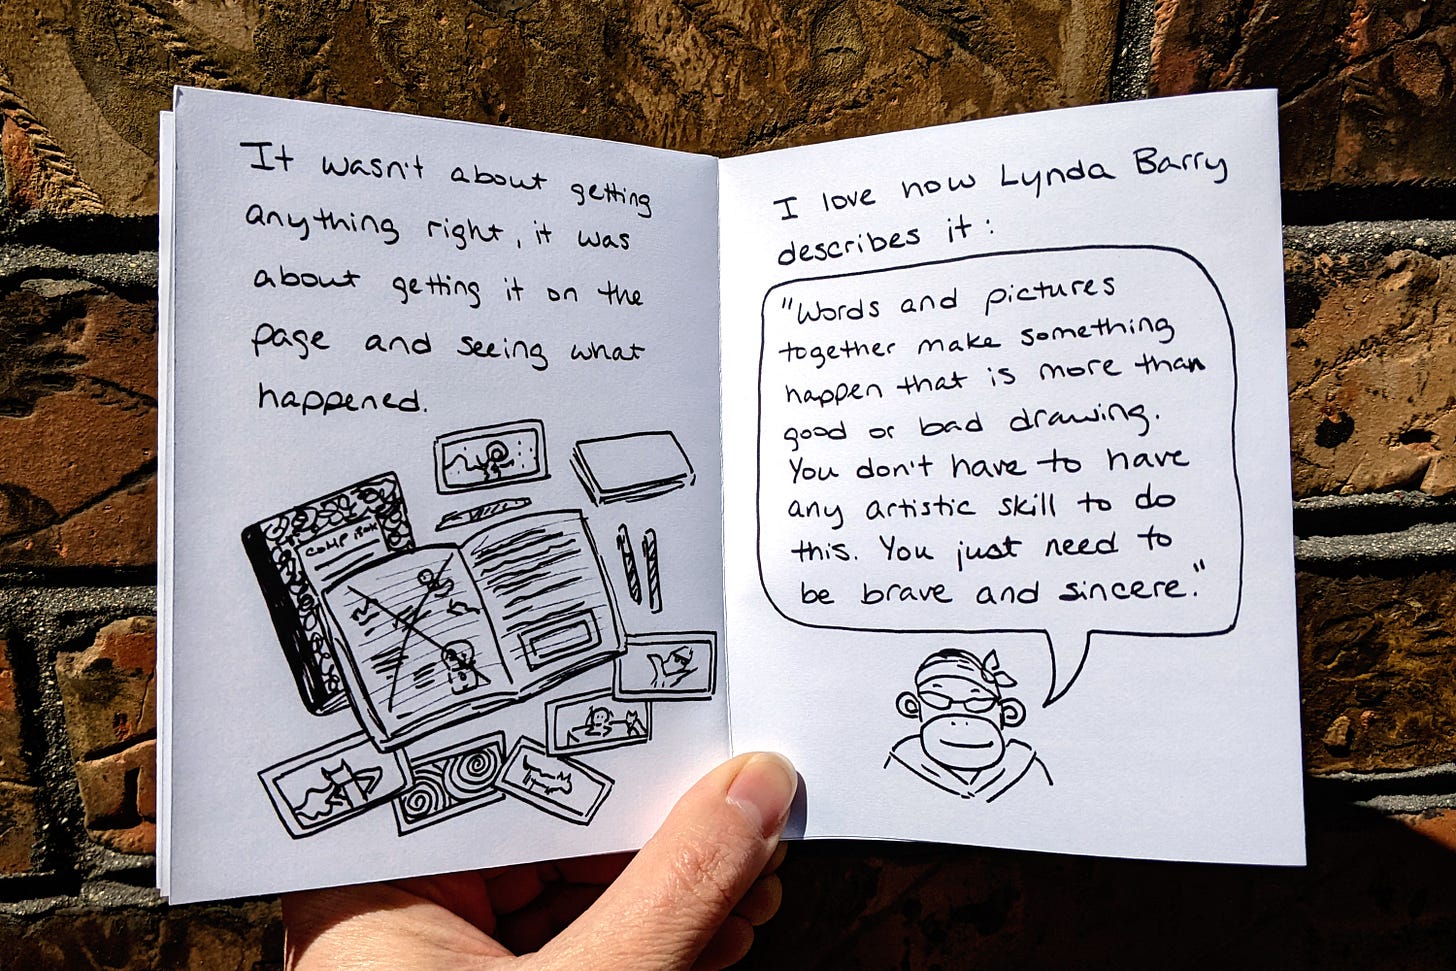 It wasn't about getting
anything right, it was
about getting it on the
page and seeing what
happened.
COMP BOOK
I love how Lynda Barry
describes it:
"Words and pictures
together make something
happen that is more than
good or bad drawing.
You don't have to have
any artistic skill to do
this. You just need to
be brave and sincere."